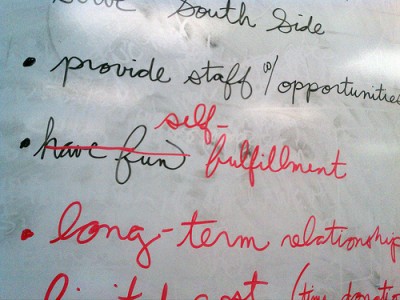 serve South Side
• provide staff w/ opportunities
self-
• have fun fulfillment
• long-term relationship
limited cost (time, donation